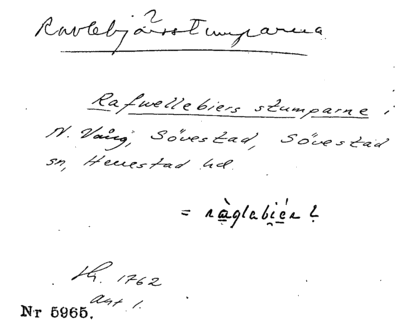 Ravlebjärsstumparna
?
Rafwellebiers stumparne i
N. Vång, Sövestad, Sövestad
sn, Herrestad hd.
= ràglabiér ?
Sk. 1762
akt 1.
Nr 5965.